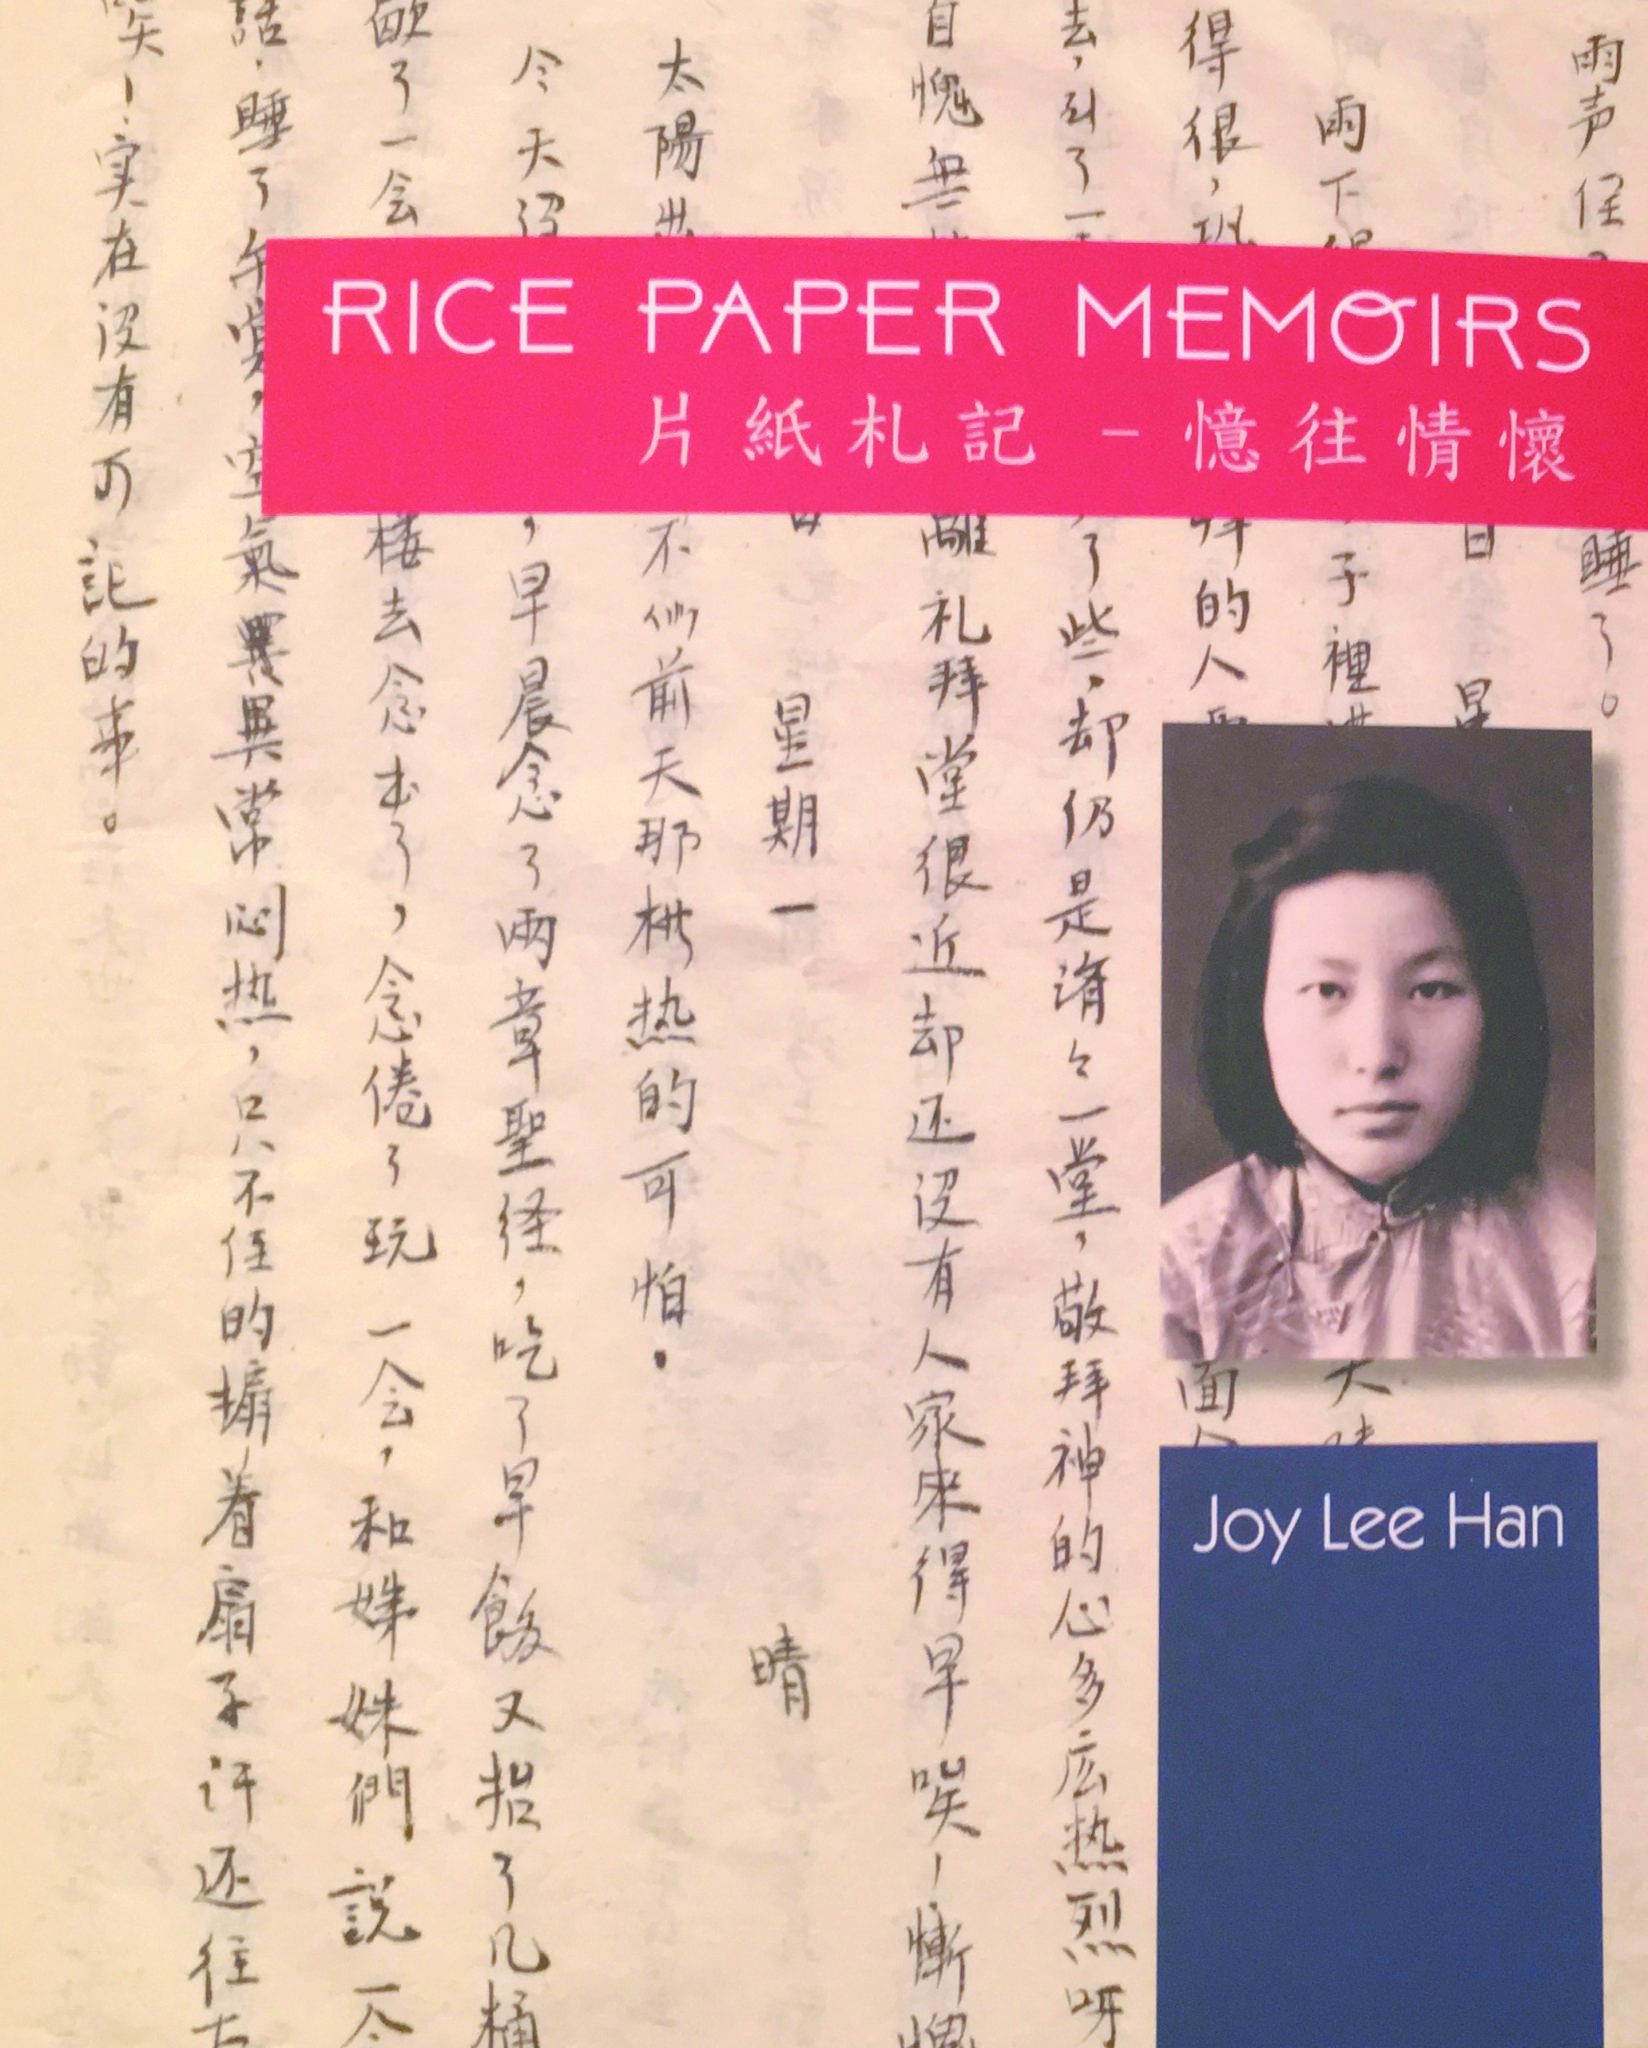 RICE PAPER MEMOIRS
片紙札記 – 憶往情懷
雨声住 睡了。
日 星
雨下得 子裡 大
得很，恐 的人 面
去，到了一 了些，却仍是濟々一堂，敬拜神的心多庅热烈呀
自愧無 離礼拜堂很近却还没有人家来得早唉！慚愧
日 星期一 晴
太陽出 不似前天那样热的可怕．
今天没 ，早晨念了兩章聖经，吃了早飯又抬了几桶
歇了一会 楼去念书了，念倦了玩一会，和姊妹們説一会
話．睡了午覺，空氣異常闷热，只不住的搧着扇子汗还往
笑！实在没有可記的事。
Joy Lee Han